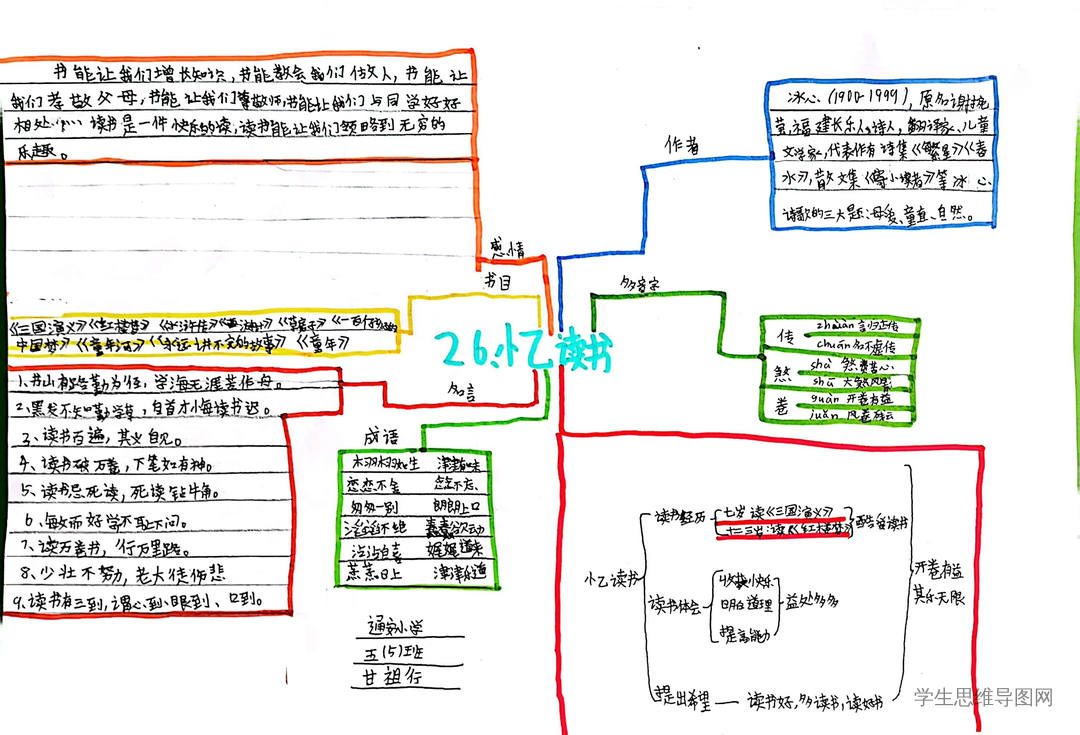 书能让我们增长知识,书能教会我们做文人,书能让
我们孝敬父母,书能让我们尊敬师,书能让我们与同学好好
相处……读书是一件快乐的读,读书能让我们领略到无穷的
乐趣。
感情
书目
《三国演义》《红楼梦》《水浒传》《西游记》
中国梦》《童年河》《讲不完的故事》《童年》
名言
1、书山有路勤为径,学海无涯苦作舟。
2、黑发不知勤学早,白首才悔读书迟。
3、读书百遍,其义自见。
4、读书破万卷,下笔如有神。
5、读书忌死读,死读钻牛角。
6、敏而好学不耻下问。
7、读万卷书,行万里路。
8、少壮不努力,老大徒伤悲
9、读书有三到,谓心到、眼到、口到。
26、小乙读书
成语
栩栩如生 津津有味
恋恋不舍 念念不忘
匆匆一别 朗朗上口
滔滔不绝 蠢蠢欲动
沾沾自喜 娓娓道来
蒸蒸日上 津津乐道
通安小学
五(5)班
甘祖行
作者
冰心(1900-1999),原名谢婉
莹,福建长乐人。诗人,翻译家、儿童
文学家,代表作有诗集《繁星》《春
水》,散文集《寄小读者》等冰心
诗歌的三大主题:母爱、童真、自然。
多音字
传 zhuàn 言归正传
chuán 名不虚传
煞 shà 煞费苦心
shā 大煞风景
卷 juàn 开卷有益
juǎn 风卷残云
小乙读书
读书经历
七岁读《三国演义》
十二三岁:读《红楼梦》
酷爱读书
读书体会
收获快乐
明白道理
提高能力
益处多多
提出希望
读书好,多读书,读好书
开卷有益
其乐无限
学生思维导图网